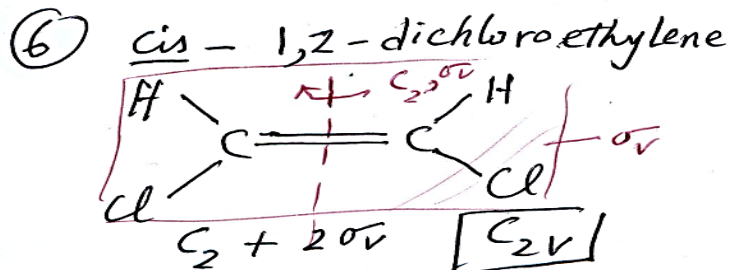 ⑥ cis - 1,2-dichloroethylene
C₂, σv
H H
C C σv
Cl Cl
C₂ + 2σv C₂v